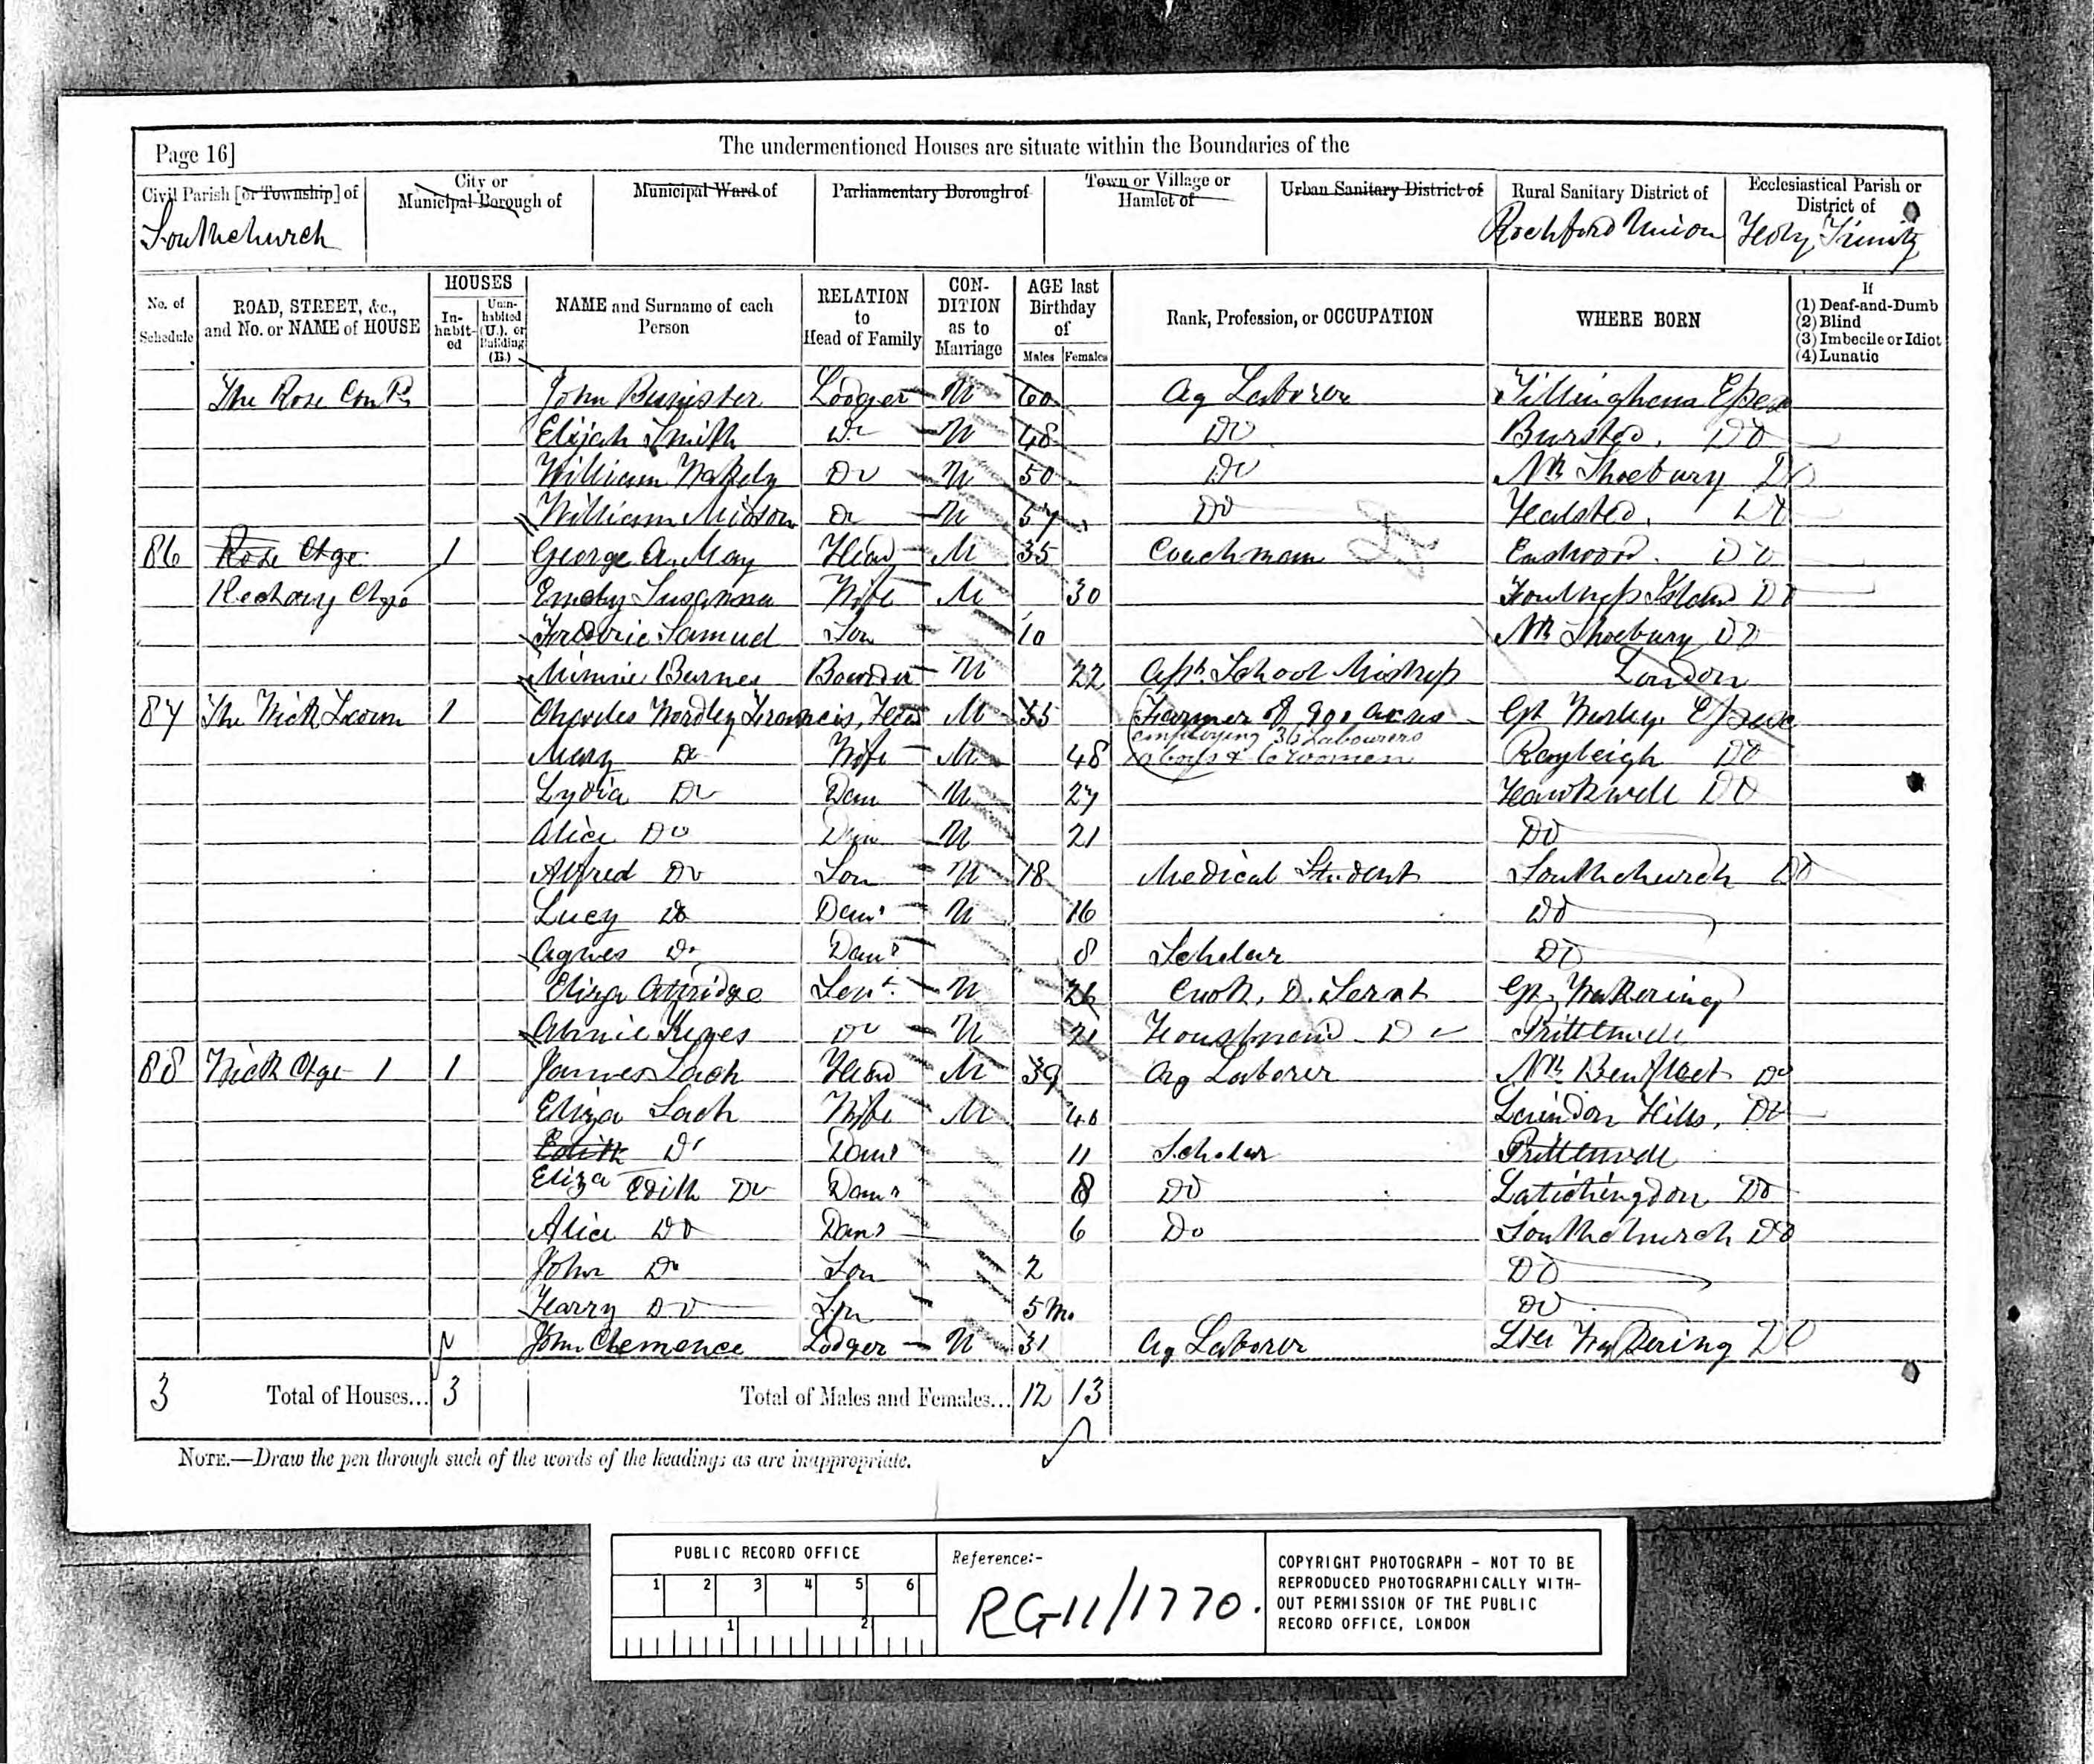 Page 16]
The undermentioned Houses are situate within the Boundaries of the
Civil Parish [or Township] of
City or Municipal Borough of
Municipal Ward of
Parliamentary Borough of
Town or Village or Hamlet of
Urban Sanitary District of
Rural Sanitary District of
Ecclesiastical Parish or District of
Southchurch
Rochford Union
Holy Trinity
No. of Schedule
ROAD, STREET, &c., and No. or NAME of HOUSE
HOUSES
In-habit-ed
Unin-habited (U.), or Building (B.)
NAME and Surname of each Person
RELATION to Head of Family
CON-DITION as to Marriage
AGE last Birthday of
Males
Females
Rank, Profession, or OCCUPATION
WHERE BORN
If
(1) Deaf-and-Dumb
(2) Blind
(3) Imbecile or Idiot
(4) Lunatic
The Rose John Lodger U 60 Ag Laborer Tillingham Essex
Elijah Smith Do U 48 Do Bursted. Do
William Wakely Do U 50 Do Nth Shoebury Do
William Midson Do U 57 Do Halsted. Do
86 Rose Ctge 1 George A. May Head M 35 Coachman Eastwood. Do
Rectory Ctge Emily Susanna Wife M 30 Foulness Island Do
Frederic Samuel Son 10 Nth Shoebury Do
Minnie Barnes Boarder U 22 Asst. School Mistress London
87 The Wick Farm 1 Charles Wordley Francis, Head M 55 Farmer of 900 acres Gt Essex
employing 36 Labourers
boys & 6 women
Mary Do Wife M 48 Rayleigh Do
Lydia Do Daur U 27 Hawkwell Do
Alice Do Daur U 21 Do
Alfred Do Son U 18 Medical Student Southchurch Do
Lucy Do Daur U 16 Do
Agnes Do Daur 8 Scholar Do
Eliza Attridge Servt. U 26 Cook, D. Servt Gt Wakering
Annie Keyes Do U 21 Housemaid Do Prittlewell
88 Wick Ctge 1 1 James Lach Head M 39 Ag Laborer Nth Benfleet Do
Eliza Lach Wife M 40 Laindon Hills, Do
Edith Do Daur 11 Scholar Prittlewell
Eliza
Edith Do Daur 8 Do Latchingdon Do
Alice Do Daur 6 Do Southchurch Do
John Do Son 2 Do
Harry Do Son 5 m. Do
John Clemence Lodger U 31 Ag Laborer Ltle Wakering Do
3 Total of Houses... 3 Total of Males and Females... 12 13
NOTE.—Draw the pen through such of the words of the headings as are inappropriate.
PUBLIC RECORD OFFICE
1 2 3 4 5 6
1 2
Reference:-
RG11/1770.
COPYRIGHT PHOTOGRAPH - NOT TO BE
REPRODUCED PHOTOGRAPHICALLY WITH-
OUT PERMISSION OF THE PUBLIC
RECORD OFFICE, LONDON